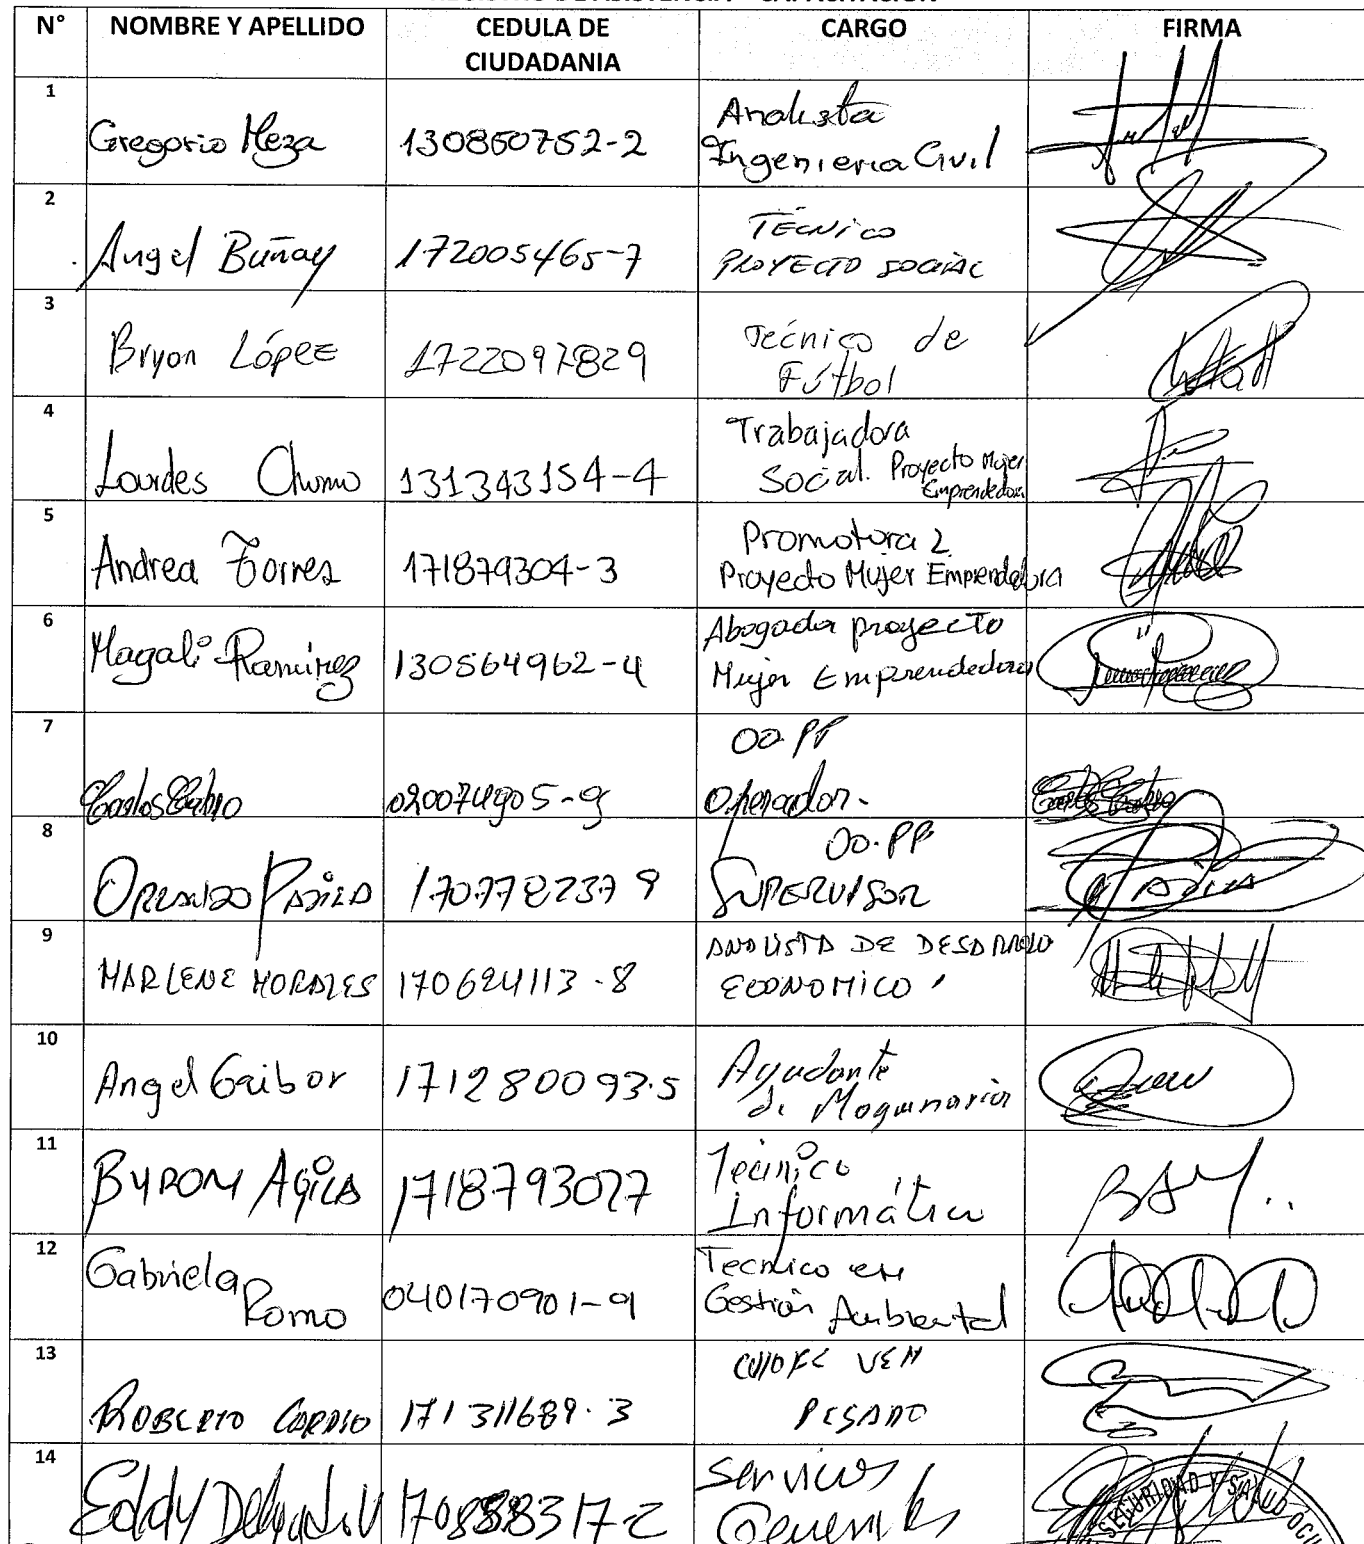 N° NOMBRE Y APELLIDO CEDULA DE CIUDADANIA CARGO FIRMA
1 Gregorio Meza 130860752-2 Analista Ingenieria Civil
2 Angel Buñay 172005465-7 TÉCNICO PROYECTO SOCIAL
3 Bryon LópEz 1722097829 Técnico de Fútbol
4 Lourdes Chumo 131343154-4 Trabajadora Social. Proyecto Mujer Emprendedora
5 Andrea Torres 171879304-3 Promotora 2 Proyecto Mujer Emprendedora
6 Magali Ramirez 130564962-4 Abogada proyecto Mujer Emprendedora
7 Carlos 020074905-9 OO.PP Operador.
8 ORLANDO 170778237 9 OO.PP SUPERVISOR
9 MARLENE MORALES 170624113-8 ANALISTA DE DESARROLLO ECONOMICO
10 Angel Gaibor 171280093.5 Ayudante de Maquinaria
11 BYRON AGILA 1718793027 Técnico Informático
12 Gabriela Romo 040170901-9 Tecnico en Gestión Ambiental
13 ROBERTO 171311689.3 CHOFER VEH PESADO
14 Eddy Delgado V 170888317-2 Servicios Generales
SEGURIDAD Y SALUD OCU